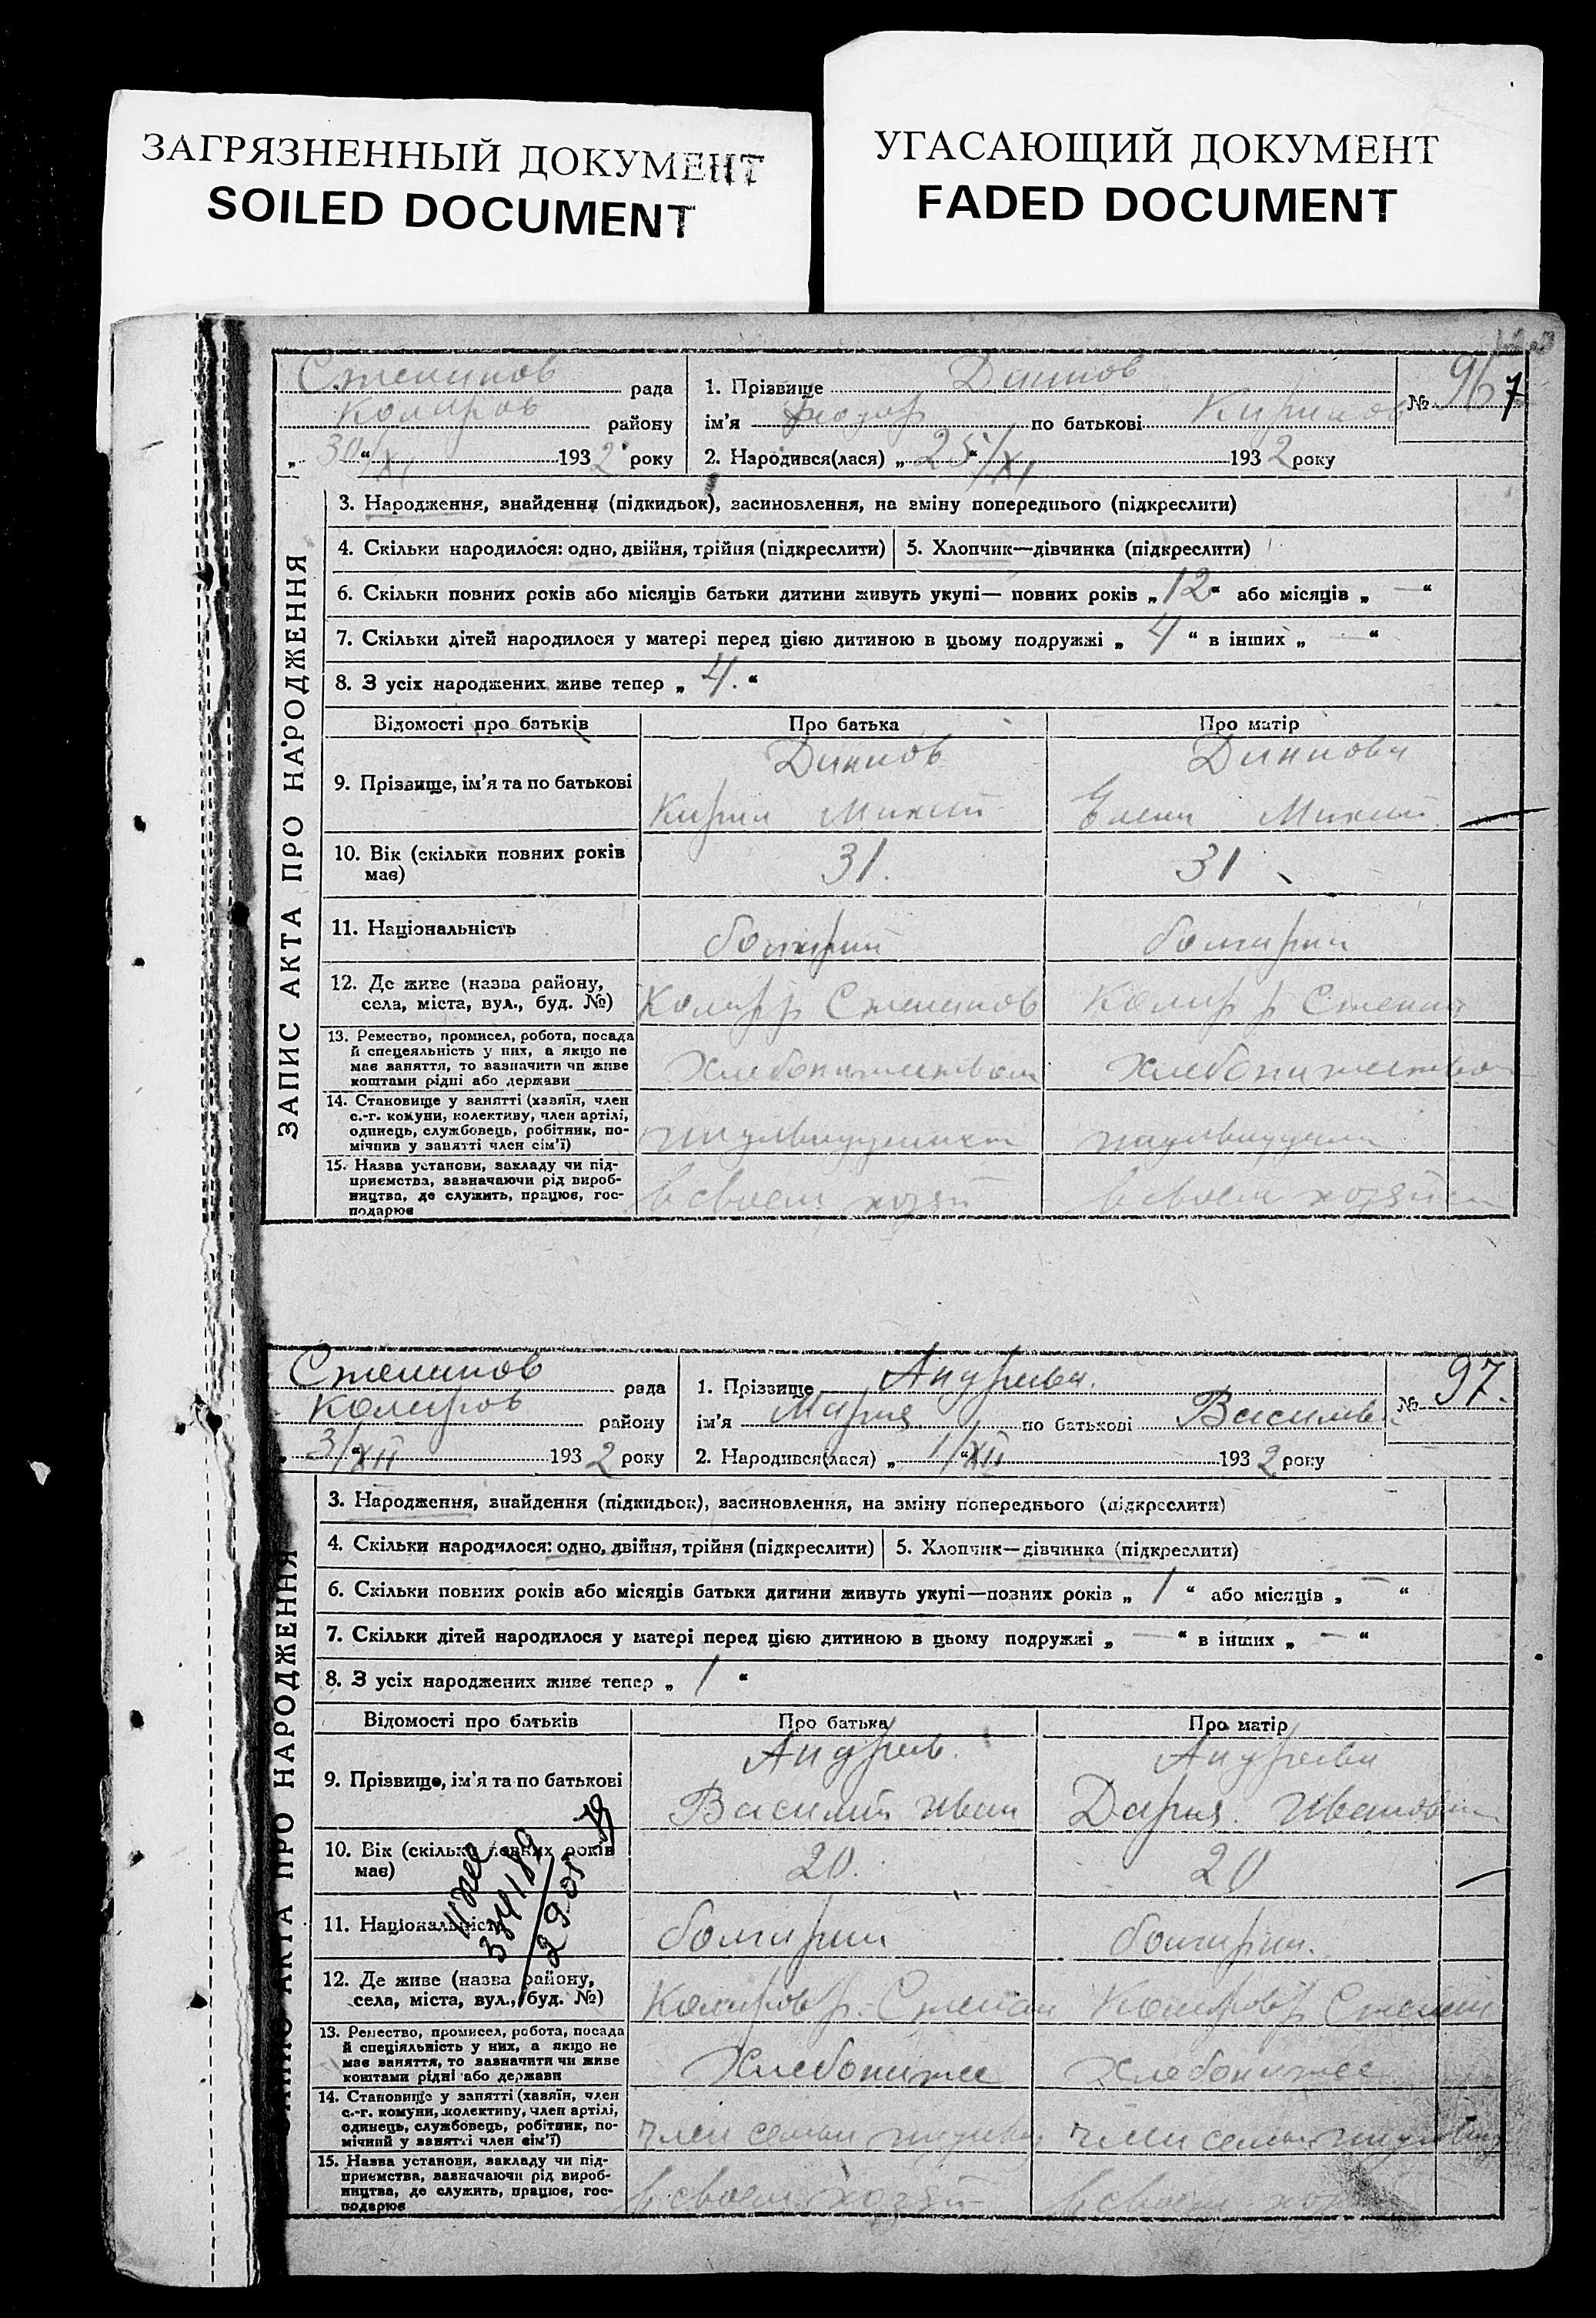 ЗАГРЯЗНЕННЫЙ ДОКУМЕНТ
SOILED DOCUMENT
УГАСАЮЩИЙ ДОКУМЕНТ
FADED DOCUMENT
ЗАПИС АКТА ПРО НАРОДЖЕННЯ
Степанов рада
Колиров району
„30“/XI 1932 року
1. Прізвище Динков
ім'я Феодор по батькові Кирилов
№ 96
2. Народився(лася) „25“/XI 1932 року
3. Народження, знайдення (підкидьок), засиновлення, на зміну попереднього (підкреслити)
4. Скільки народилося: одно, двійня, трійня (підкреслити) 5. Хлопчик—дівчинка (підкреслити)
6. Скільки повних років або місяців батьки дитини живуть укупі— повних років „12“ або місяців „—“
7. Скільки дітей народилося у матері перед цією дитиною в цьому подружжі „4“ в інших „—“
8. З усіх народжених живе тепер „4.“
Відомості про батьків Про батька Про матір
9. Прізвище, ім'я та по батькові
Динков Динкова
Кирил Михай Елена Михай
10. Вік (скільки повних років
має)
31. 31
11. Національність болгарин болгарин
12. Де живе (назва району,
села, міста, вул., буд. №)
Колар р Степанов Колар р Степан
13. Ремество, промисел, робота, посада
й спецеяльність у них, а якщо не
має заняття, то зазначити чи живе
коштами рідні або держави
14. Становище у занятті (хазяїн, член
с.-г. комуни, колективу, член артілі,
одинець, службовець, робітник, по-
мічник у занятті член сім'ї)
15. Назва установи, закладу чи під-
приємства, зазначаючи рід вироб-
ництва, де служить, працює, гос-
подарює
в своем хозяй в своем хозяйст
Степанов рада
Коларов району
3/XII 1932 року
1. Прізвище Андреева.
ім'я Мария по батькові Васильев
№ 97.
2. Народився(лася) „1/“XII 1932 року
3. Народження, знайдення (підкидьок), засиновлення, на зміну попереднього (підкреслити)
4. Скільки народилося: одно, двійня, трійня (підкреслити) 5. Хлопчик—дівчинка (підкреслити)
6. Скільки повних років або місяців батьки дитини живуть укупі—повних років „1“ або місяців „—“
7. Скільки дітей народилося у матері перед цією дитиною в цьому подружжі „—“ в інших „—“
8. З усіх народжених живе тепер „1“
Відомості про батьків Про батька Про матір
9. Прізвище, ім'я та по батькові
Андреев. Андреева
Василий Иван Дария. Иванов
10. Вік (скільки повних років
має)
20. 20
11. Національність болгарин болгарин.
12. Де живе (назва району,
села, міста, вул., буд. №)
Коларов р. Степан Коларов р Степан
13. Ремество, промисел, робота, посада
й спеціяльність у них, а якщо не
має заняття, то зазначити чи живе
коштами рідні або держави
Хлебопаше Хлебопаше
14. Становище у занятті (хазяїн, член
с.-г. комуни, колективу, член артілі,
одинець, службовець, робітник, по-
мічний у занятті член сім'ї)
член семьи член семьи
15. Назва установи, закладу чи під-
приємства, зазначаючи рід вироб-
ництва, де служить, працює, гос-
подарює
в своем хозяй в своем хозяй
ЗАПИС АКТА ПРО НАРОДЖЕННЯ